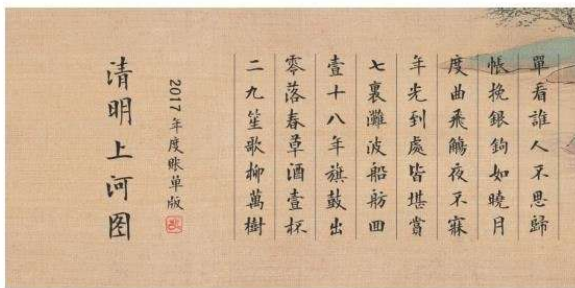 單看誰人不思歸
帳挽銀鉤如曉月
度曲飛觴夜不寐
年光到處皆堪賞
七裏灘波船舫回
壹十八年旗鼓出
零落春草酒壹杯
二九笙歌柳萬樹
2017年度账單版
清明上河图